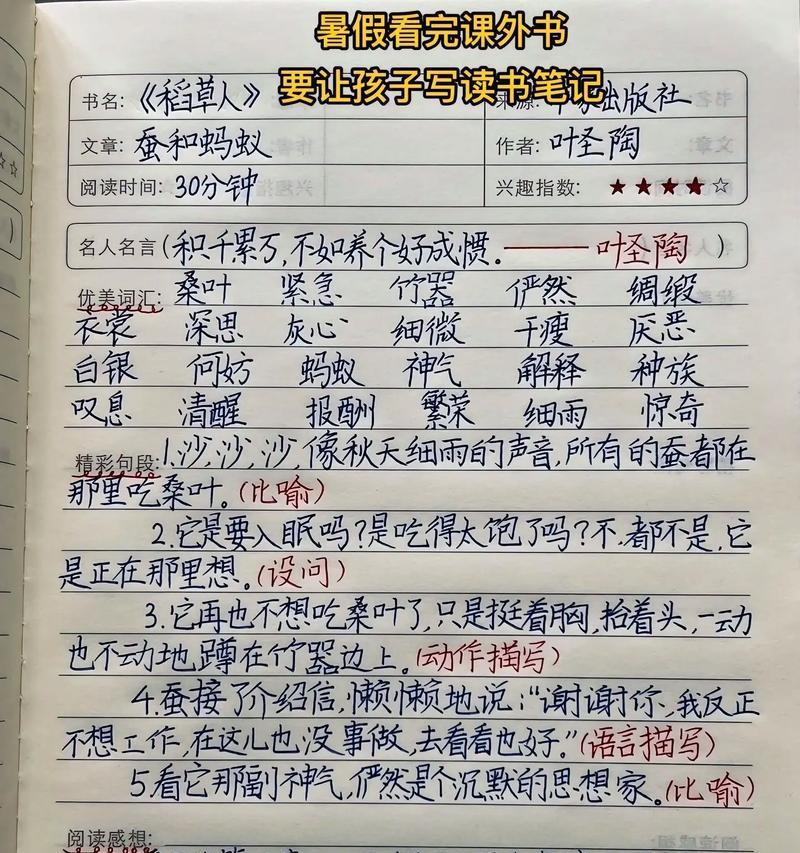 暑假看完课外书
要让孩子写读书笔记
书名:《稻草人》 出版社
文章:蚕和蚂蚁 作者:叶圣陶
阅读时间:30分钟 兴趣指数:★★★★☆
名人名言(积千累万,不如养个好成惯.——叶圣陶)
优美词汇: 桑叶 紧急 竹器 俨然 绸缎
衣裳 深思 灰心 细微 干瘦 厌恶
白银 何妨 蚂蚁 神气 解释 种族
叹息 清醒 报酬 繁荣 细雨 惊奇
精彩句段:1.沙,沙,沙,像秋天细雨的声音,所有的蚕都在
那里吃桑叶。(比喻)
2.它是要入眠吗?是吃得太饱了吗?不,都不是,它
是正在那里想。(设问)
3.它再也不想吃桑叶了,只是挺着胸,抬着头,一动
也不动地蹲在竹器边上。(动作描写)
4.蚕接了介绍信,懒懒地说:“谢谢你,我反正
不想工作,在这儿也没事做,去看看也好。”(语言描写)
5.看它那副神气,俨然是个沉默的思想家。(比喻)
阅读感想: